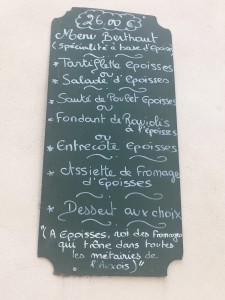 26.00 €
Menu Berthaut
(spécialité à base d'Epoisses
* Tartiflette Epoisses
ou
* Salade d'Epoisses
* Sauté de Poulet Epoisses
ou
* Fondant de Raviolis
à l'époisses
ou
* Entrecôte Epoisses
* Assiette de Fromage
d'Epoisses
* Dessert aux choix
"(A EPOISSES, roi des fromages
qui trône dans toutes
les métairies de
l'Auxois)"